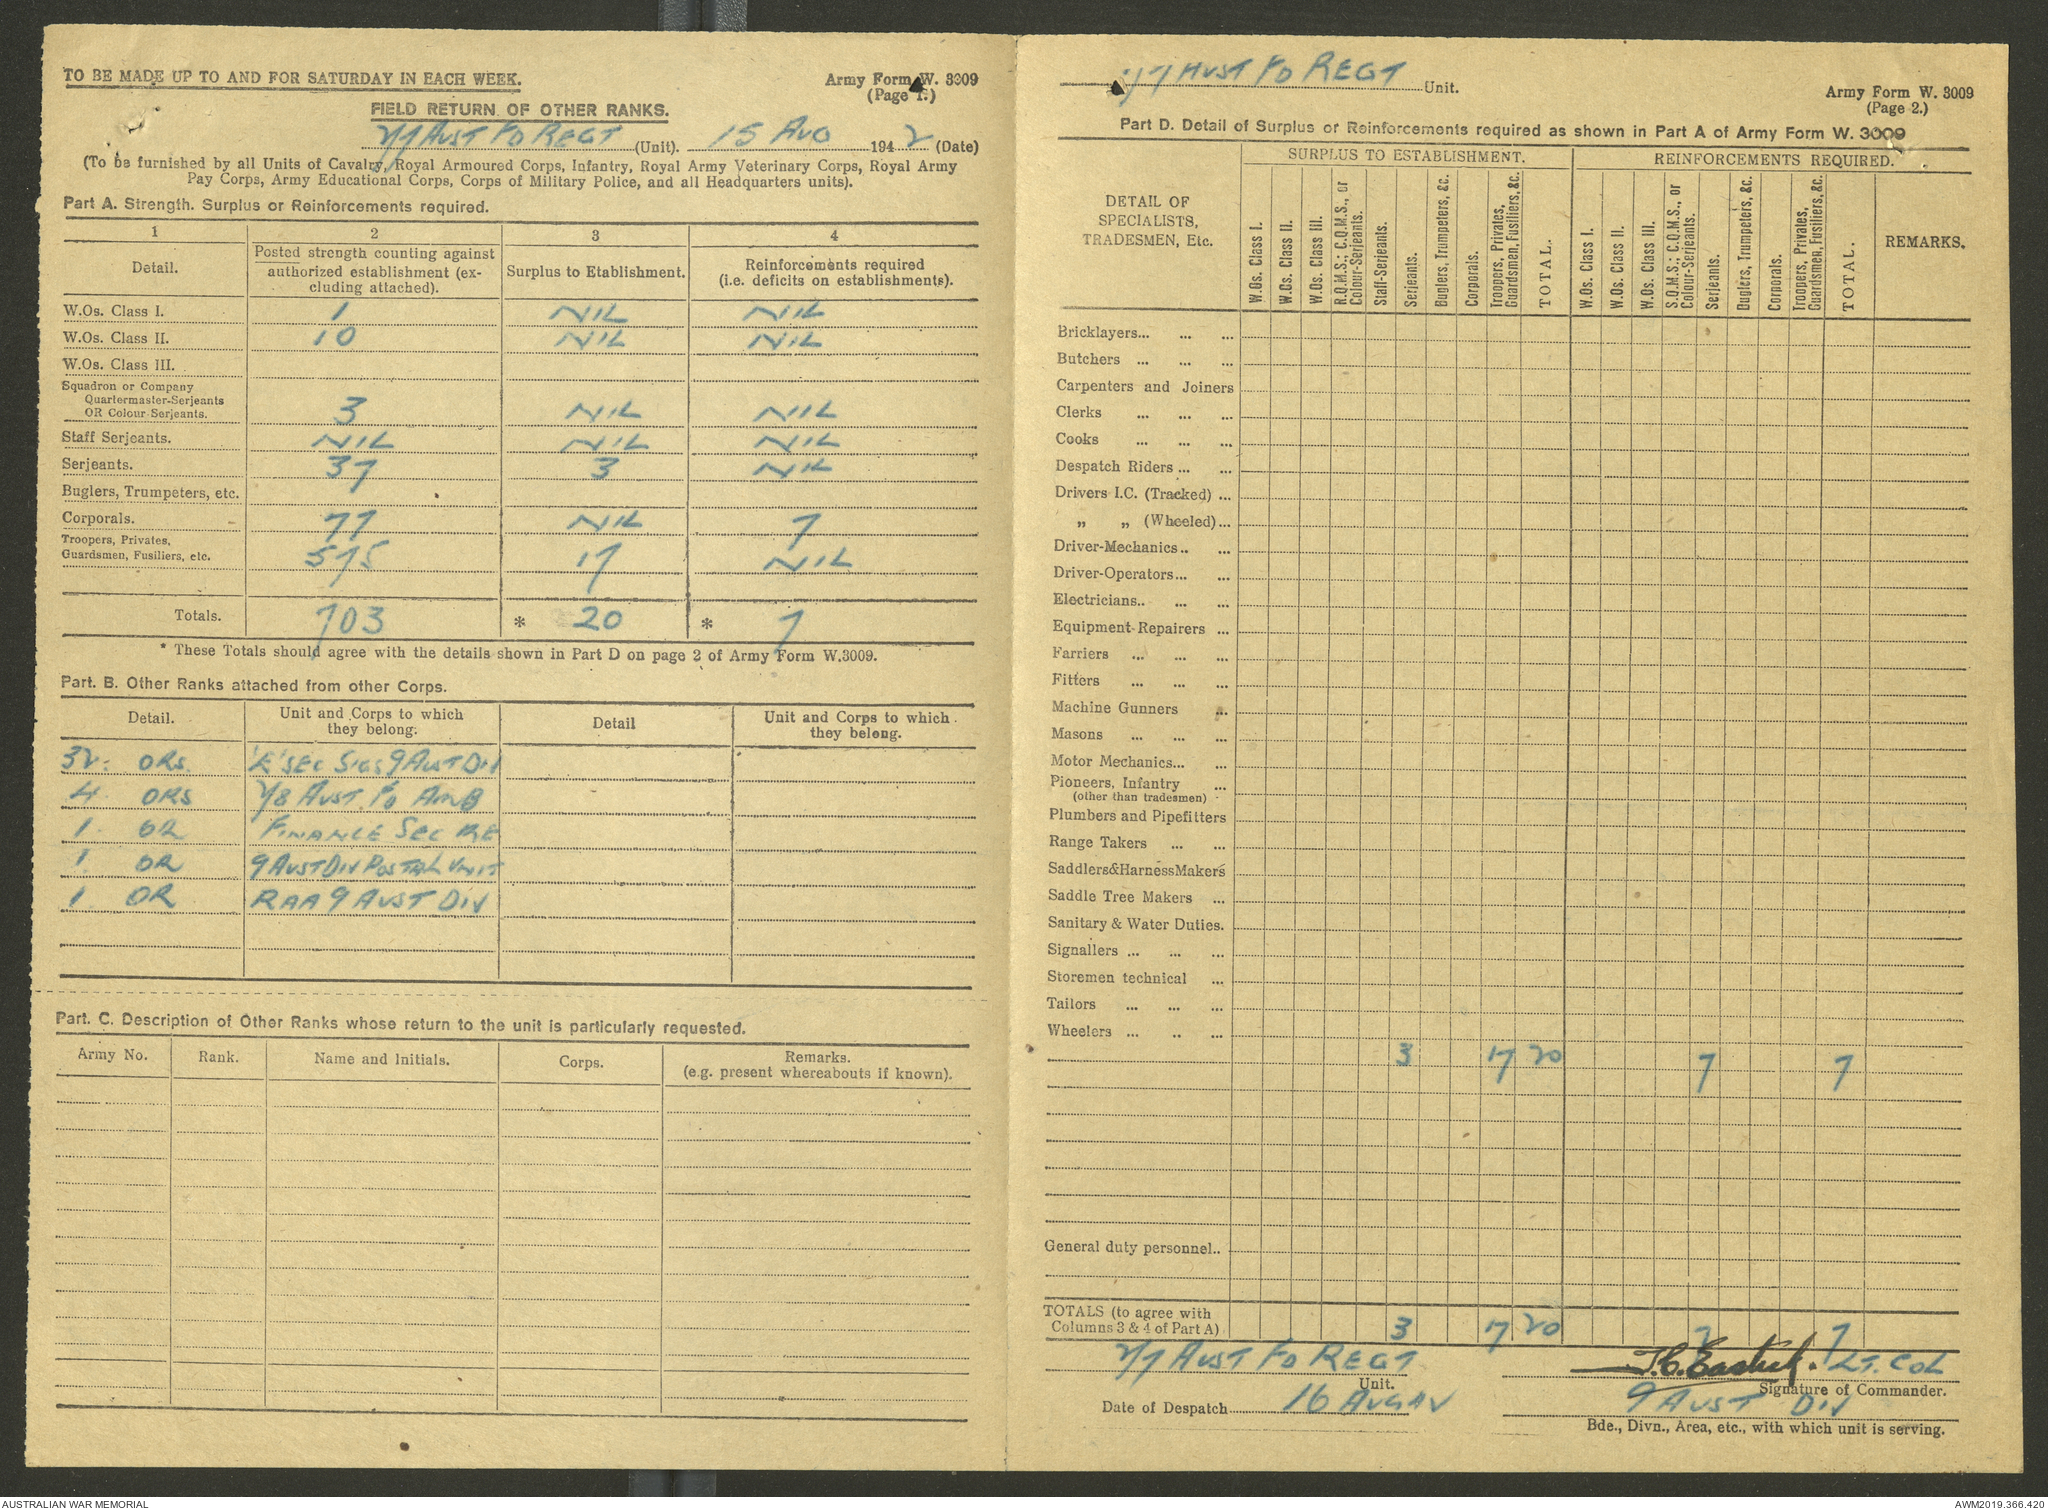 TO BE MADE UP TO AND FOR SATURDAY IN EACH WEEK.
Army Form W. 3009
(Page 1.)
FIELD RETURN OF OTHER RANKS.
2/7 AUST FD REGT (Unit). 15 AUG 1942 (Date)
(To be furnished by all Units of Cavalry, Royal Armoured Corps, Infantry, Royal Army Veterinary Corps, Royal Army
Pay Corps, Army Educational Corps, Corps of Military Police, and all Headquarters units).
Part A. Strength. Surplus or Reinforcements required.
1 2 3 4
Detail. Posted strength counting against authorized establishment (excluding attached). Surplus to Etablishment. Reinforcements required (i.e. deficits on establishments).
W.Os. Class I. 1 NIL NIL
W.Os. Class II. 10 NIL NIL
W.Os. Class III.
Squadron or Company
Quartermaster-Serjeants
OR Colour-Serjeants. 3 NIL NIL
Staff Serjeants. NIL NIL NIL
Serjeants. 37 3 NIL
Buglers, Trumpeters, etc.
Corporals. 77 NIL 7
Troopers, Privates,
Guardsmen, Fusiliers, etc. 575 17 NIL
Totals. 703 * 20 * 7
* These Totals should agree with the details shown in Part D on page 2 of Army Form W.3009.
Part. B. Other Ranks attached from other Corps.
Detail. Unit and Corps to which they belong. Detail Unit and Corps to which they belong.
32. ORS. 'E' SEC SIGS 9 AUST DIV
4 ORS 2/8 AUST FD AMB
1. OR FINANCE SEC RE
1. OR 9 AUST DIV POSTAL UNIT
1. OR RAA 9 AUST DIV
Part. C. Description of Other Ranks whose return to the unit is particularly requested.
Army No. Rank. Name and Initials. Corps. Remarks.
(e.g. present whereabouts if known).
2/7 AUST FD REGT Unit.
Army Form W. 3009
(Page 2.)
Part D. Detail of Surplus or Reinforcements required as shown in Part A of Army Form W. 3009
SURPLUS TO ESTABLISHMENT. REINFORCEMENTS REQUIRED.
DETAIL OF
SPECIALISTS,
TRADESMEN, Etc.
W.Os. Class I.
W.Os. Class II.
W.Os. Class III.
R.Q.M.S.; C.Q.M.S., or Colour-Serjeants.
Staff-Serjeants.
Serjeants.
Buglers, Trumpeters, &c.
Corporals.
Troopers, Privates, Guardsmen, Fusiliers, &c.
TOTAL.
W.Os. Class I.
W.Os. Class II.
W.Os. Class III.
S.Q.M.S.; C.Q.M.S., or Colour-Serjeants.
Serjeants.
Buglers, Trumpeters, &c.
Corporals.
Troopers, Privates, Guardsmen, Fusiliers, &c.
TOTAL.
REMARKS.
Bricklayers... ... ...
Butchers ... ... ...
Carpenters and Joiners
Clerks ... ... ...
Cooks ... ... ...
Despatch Riders ... ...
Drivers I.C. (Tracked) ...
„ „ (Wheeled)...
Driver-Mechanics.. ...
Driver-Operators... ...
Electricians.. ... ...
Equipment Repairers ...
Farriers ... ... ...
Fitters ... ... ...
Machine Gunners ...
Masons ... ... ...
Motor Mechanics... ...
Pioneers, Infantry ...
(other than tradesmen)
Plumbers and Pipefitters
Range Takers ... ...
Saddlers&HarnessMakers
Saddle Tree Makers ...
Sanitary & Water Duties.
Signallers ... ... ...
Storemen technical ...
Tailors ... ... ...
Wheelers ... .. ...
3 17 20 7 7
General duty personnel..
TOTALS (to agree with
Columns 3 & 4 of Part A) 3 17 20 7 7
2/7 AUST FD REGT
Unit.
J.C. Eastick. LT. COL
Signature of Commander.
Date of Despatch 16 AUG 42
9 AUST DIV
Bde., Divn., Area, etc., with which unit is serving.
AUSTRALIAN WAR MEMORIAL
AWM2019.366.420